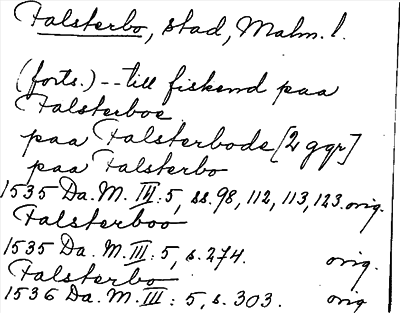 Falsterbo, stad, Malm. l.
(forts.) -- till fiskend paa
Falsterboe
paa Falsterbode [2 ggr]
paa Falsterbo
1535 Da. M. III: 5, ss. 98, 112, 113, 123. orig.
Falsterboo
1535 Da. M. III: 5, s. 274. orig.
Falsterbo
1536 Da. M. III: 5, s. 303. orig